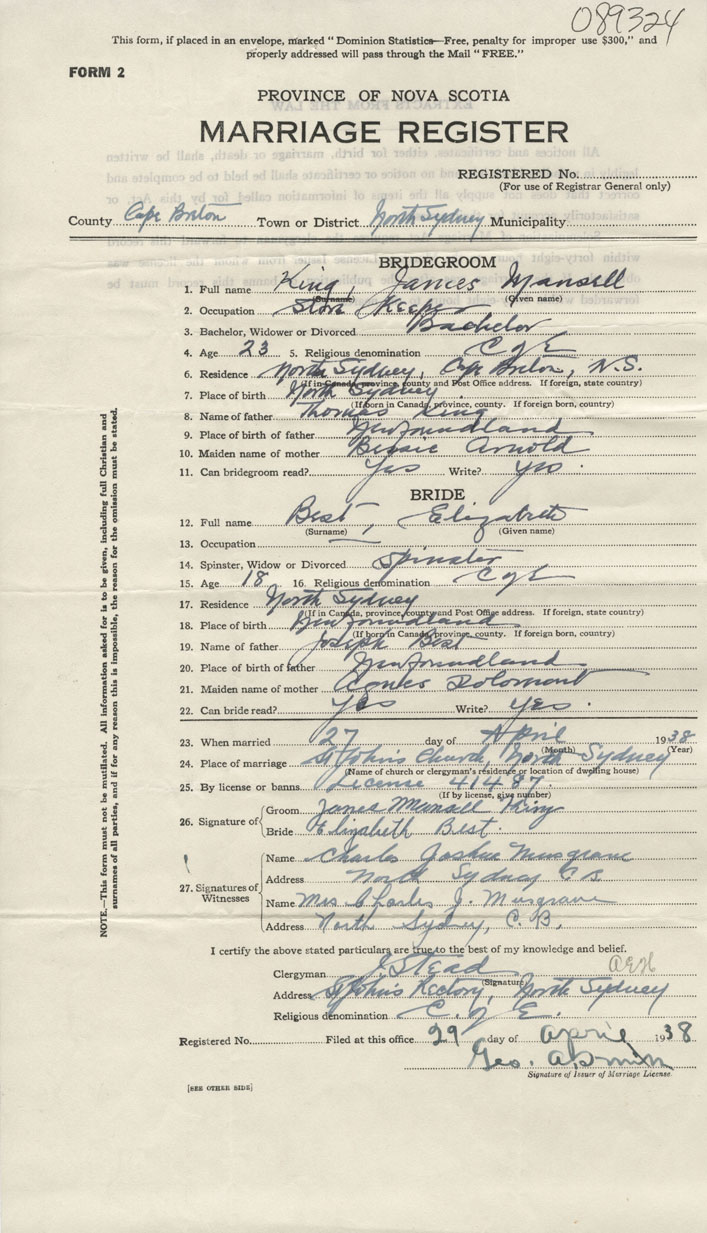 089324
This form, if placed in an envelope, marked "Dominion Statistics—Free, penalty for improper use $300," and
properly addressed will pass through the Mail "FREE."
FORM 2
PROVINCE OF NOVA SCOTIA
MARRIAGE REGISTER
REGISTERED No.
(For use of Registrar General only)
County Cape Breton Town or District North Sydney Municipality
BRIDEGROOM
1. Full name King, James Mansell
(Surname) (Given name)
2. Occupation Store Keeper
3. Bachelor, Widower or Divorced Bachelor
4. Age 23 5. Religious denomination C of E
6. Residence North Sydney, Cape Breton, N.S.
(If in Canada, province, county and Post Office address. If foreign, state country)
7. Place of birth North Sydney
(If born in Canada, province, county. If foreign born, country)
8. Name of father Thomas King
9. Place of birth of father Newfoundland
10. Maiden name of mother Bessie Arnold
11. Can bridegroom read? Yes Write? Yes.
BRIDE
12. Full name Best, Elizabeth
(Surname) (Given name)
13. Occupation —
14. Spinster, Widow or Divorced Spinster
15. Age 18 16. Religious denomination C of E
17. Residence North Sydney
(If in Canada, province, county and Post Office address. If foreign, state country)
18. Place of birth Newfoundland
(If born in Canada, province, county. If foreign born, country)
19. Name of father Joseph Best
20. Place of birth of father Newfoundland
21. Maiden name of mother Agnes Dolomont
22. Can bride read? Yes Write? Yes.
23. When married 27 day of April 1938
(Month) (Year)
24. Place of marriage St John's Church, North Sydney
(Name of church or clergyman's residence or location of dwelling house)
25. By license or banns License 41487
(If by license, give number)
26. Signature of
Groom James Mansell King
Bride Elizabeth Best.
27. Signatures of Witnesses
Name Charles Joshua Musgrave
Address North Sydney C B
Name Mrs Charles J. Musgrave
Address North Sydney, C. B.
I certify the above stated particulars are true to the best of my knowledge and belief.
Clergyman Stead
(Signature)
Address St John's Rectory, North Sydney
Religious denomination C. of E.
Registered No. Filed at this office 29 day of April 1938
Geo.
Signature of Issuer of Marriage License.
[SEE OTHER SIDE]
NOTE.—This form must not be mutilated. All information asked for is to be given, including full Christian and
surnames of all parties, and if for any reason this is impossible, the reason for the omission must be stated.